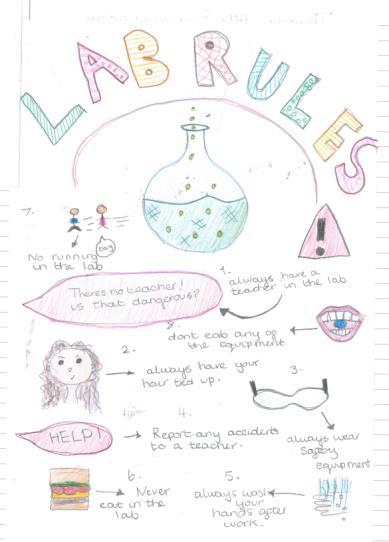 LAB RULES
7.
No running
in the lab
bag
Theres no teacher!
is that dangerous?
1.
always have a
teacher in the lab
8.
dont eat any of
the equipment
2.
always have your
hair tied up.
3.
always wear
safety
equipment
4.
HELP!
Report any accidents
to a teacher.
6.
Never
eat in the
lab
5.
always wash
your
hands after
work.